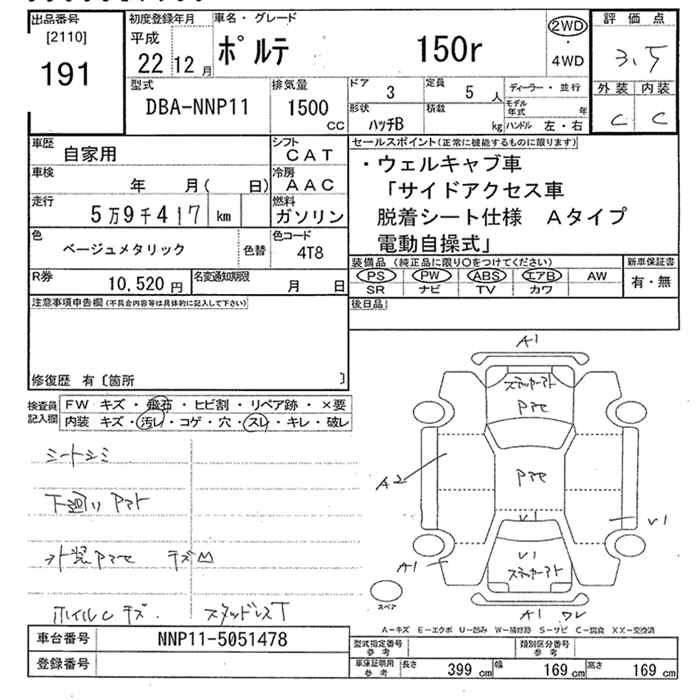 出品番号
[2110]
191
初度登録年月
平成
22 12 月
車名・グレード
ポルテ 150r
2WD
・
4WD
評価点
3.5
外装 内装
C C
型式
DBA-NNP11
排気量
1500
CC
ドア
3
定員
5 人
形状
ハッチB
積載
kg
ディーラー・並行
モデル年式 年
ハンドル 左・右
車歴
自家用
シフト
CAT
車検
年 月( 日)
冷房
AAC
走行
5万9千417 km
燃料
ガソリン
色
ベージュメタリック
色替
色コード
4T8
R券
10,520 円
名変通知期限
月 日
セールスポイント(正常に機能するものに限ります)
・ウェルキャブ車
「サイドアクセス車
脱着シート仕様 Aタイプ
電動自操式」
装備品 (純正品に限り○をつけてください)
PS PW ABS エアB AW
SR ナビ TV カワ
新車保証書
有・無
後日品
注意事項申告欄(不具合内容等は具体的に記入して下さい)
修復歴 有〔箇所 〕
検査員記入欄
FW キズ・飛石・ヒビ割・リペア跡・×要
内装 キズ・汚レ・コゲ・穴・スレ・キレ・破レ
シートシミ
下廻り
外装 キズ凹
ホイルCキズ. スタッドレスT
A1
A2
V1
V1
V1
A1
A1
スペア
A-キズ E-エクボ U-凹み W-補修跡 S-サビ C-腐食 XX-交換済
車台番号
NNP11-5051478
登録番号
型式指定番号
参考
類別区分番号
参考
車庫証明用
参考
長さ 399 cm 幅 169 cm 高さ 169 cm